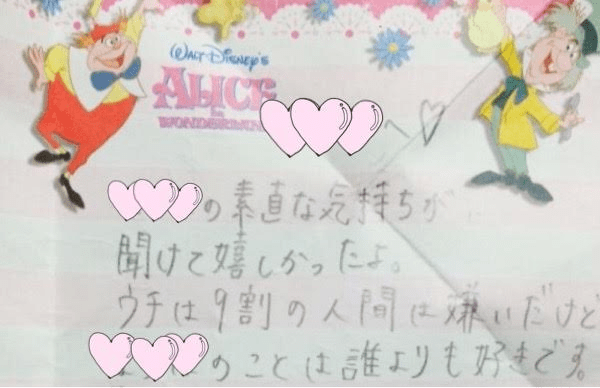 WALT DISNEY'S
ALICE
IN
WONDERLAND
へ♡
の素直な気持ちが
聞けて嬉しかったよ。
ウチは9割の人間は嫌いだけど
のことは誰よりも好きです。